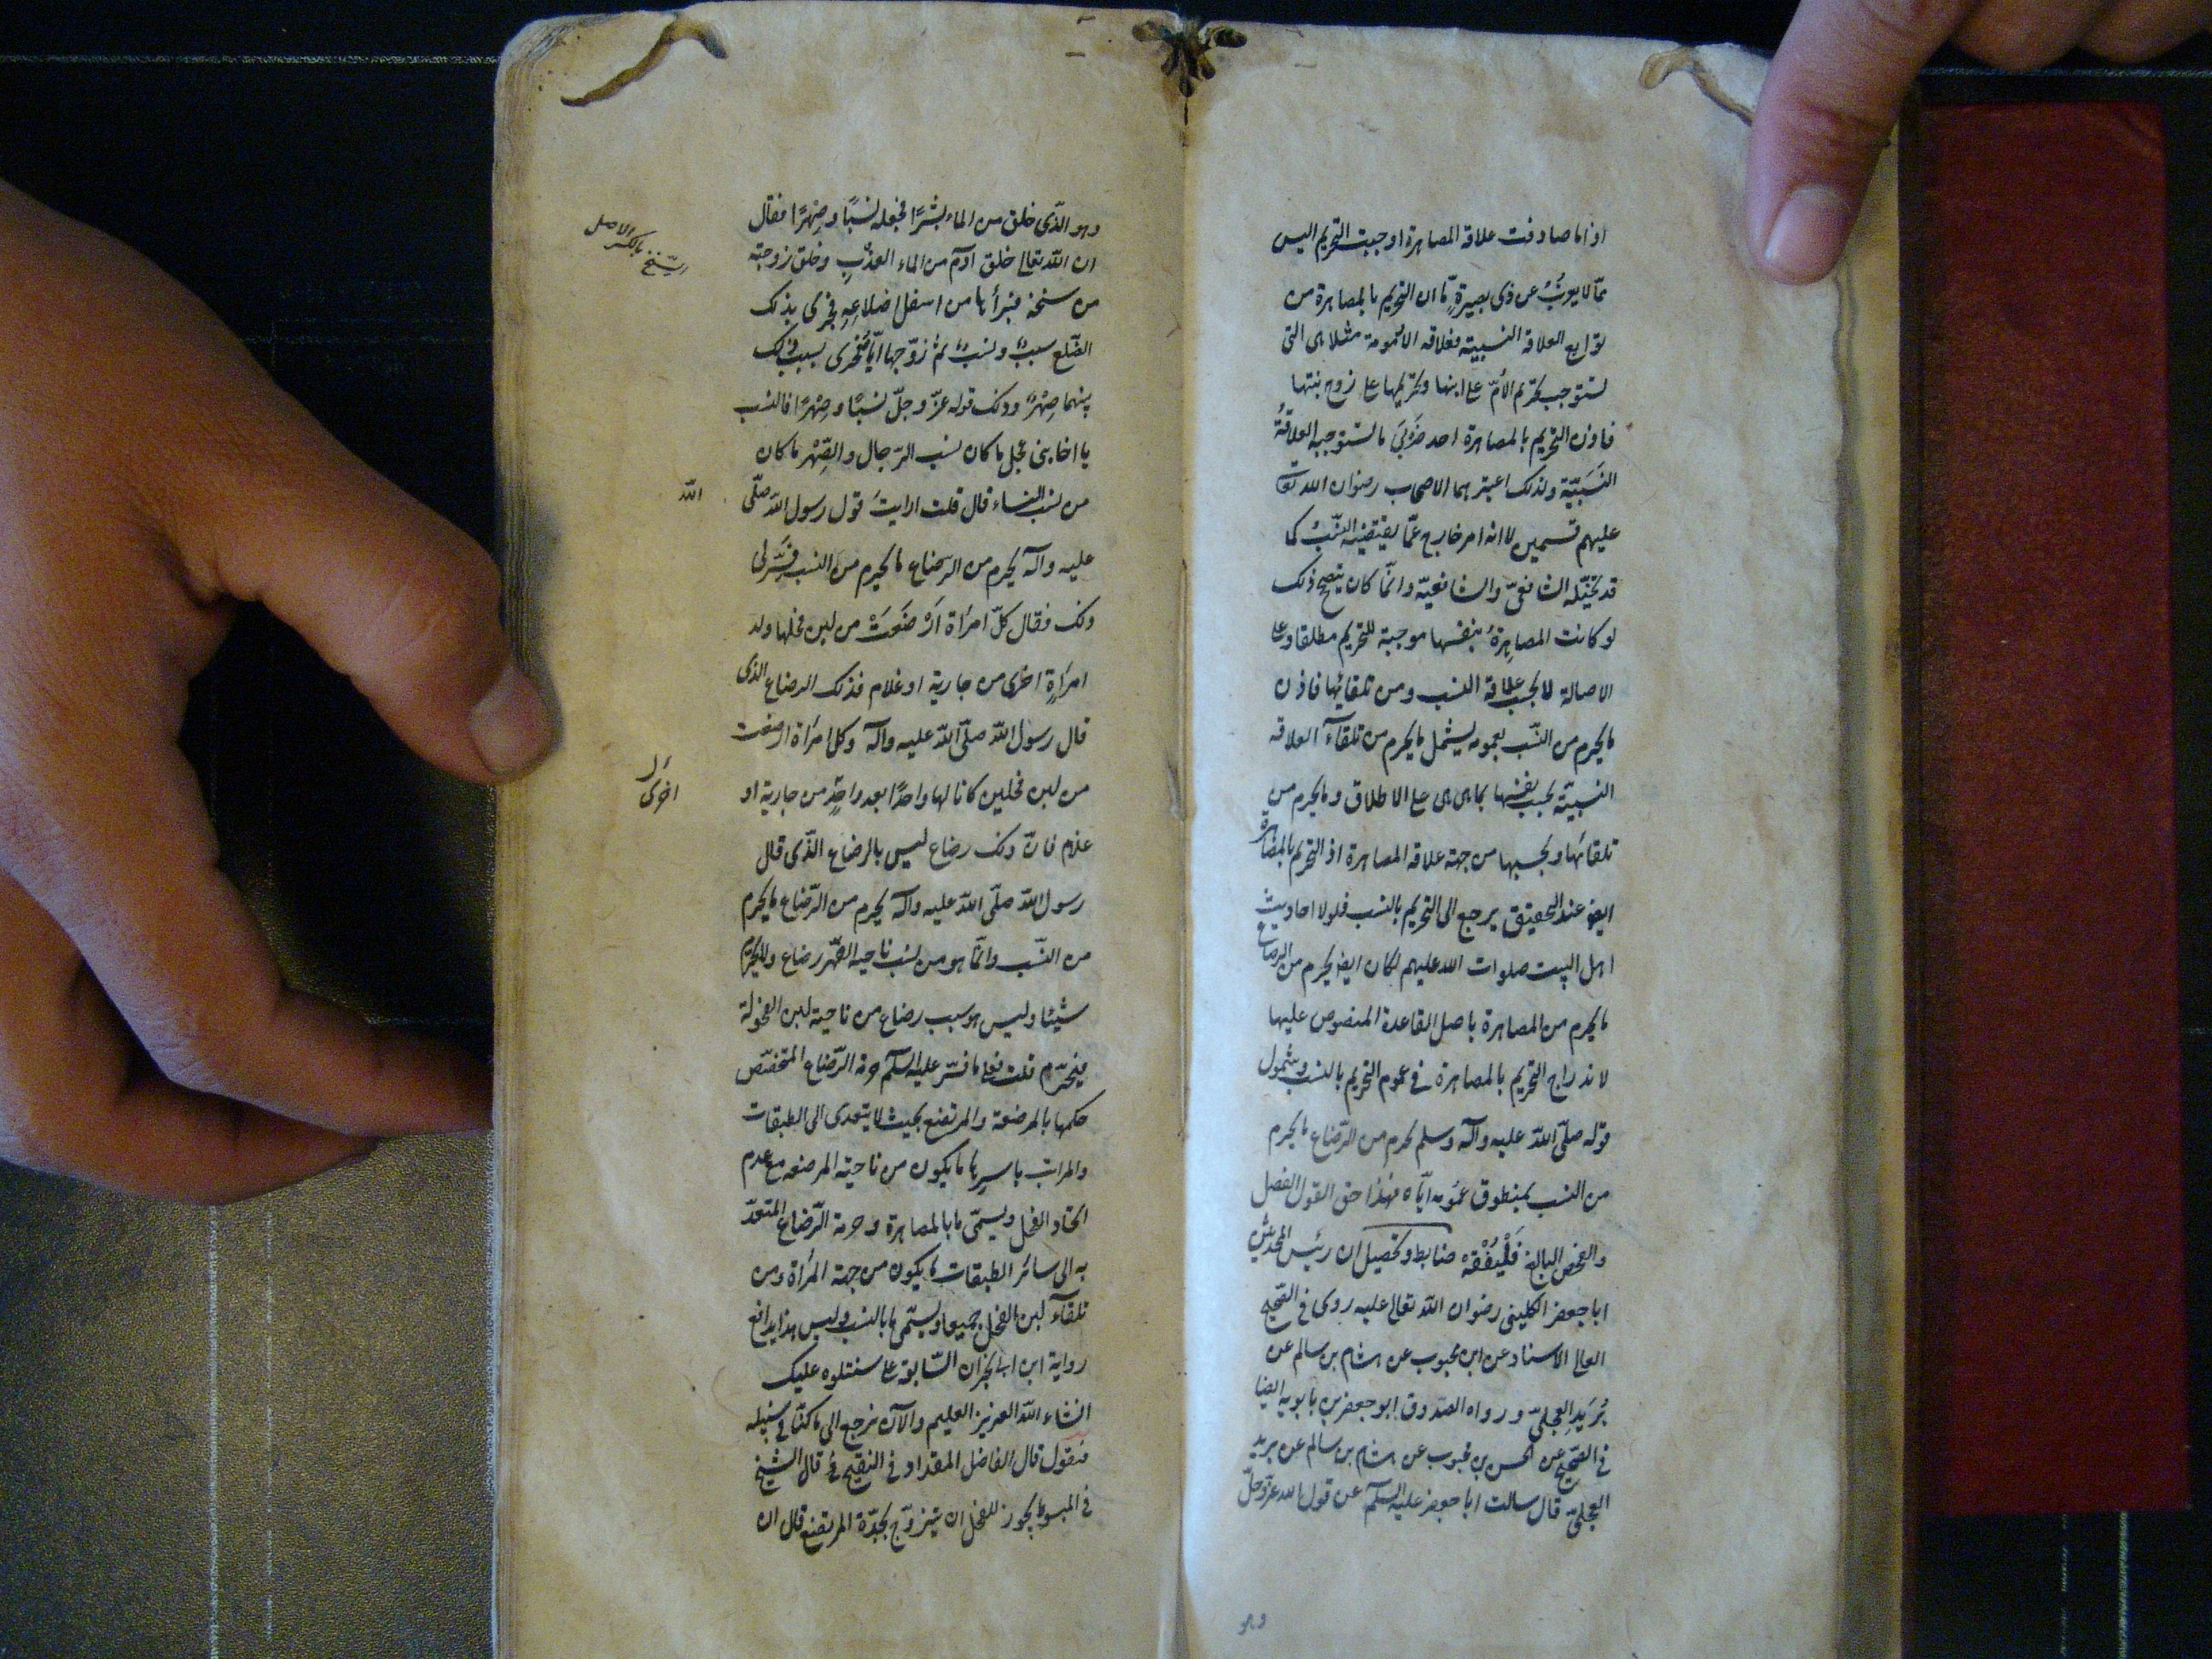 اذا ما صادفت علاقة المصاهرة اوجبت التحريم اليس
ممّا لا يعزب عن ذى بصيرةٍ ما ان التحريم بالمصاهرة من
توابع العلاقة النسبية فعلاقه الامومة مثلا هى التى
تستوجب تحريم الأمّ على ابنها وتحريمها على زوج بنتها
فاذن التحريم بالمصاهرة احد ضربَى ما تستوجبه العلاقةُ
النَسَبيّة ولذلك اعتبرهما الاصحاب رضوان الله تعالى
عليهم قسمين لا انه امر خارج عمّا يقتضيه النّسبُ كما
قد تخيّله الشافعىّ والشافعيّة وانّما كان يتصحح ذلك
لو كانت المصاهرةُ بنفسها موجبة للتحريم مطلقا وعلى
الاصالة لا بحسب علاقة النسب ومن تلقائها فاذن
ما يحرم من النّسب بعمومه يشمل ما يحرم من تلقآء العلاقه
النسبيّة بحسب نفسها بما هى هى على الاطلاق وما يحرم من
تلقائها وبحسبها من جهة علاقه المصاهرة اذ التحريم بالمصاهرة
ايضا عند التحقيق يرجع الى التحريم بالنسب فلولا احاديث
اهل البيت صلوات الله عليهم لكان ايضا يحرم من الرضاع
ما يحرم من المصاهرة باصل القاعدة المنصوص عليها
لاندراج التحريم بالمصاهرة فى عموم التحريم بالنسب وشمول
قوله صلّى اللّه عليه وآله وسلم يحرم من الرّضاع ما يحرم
من النسب بمنطوق عمومه ايّاه فهذا حق القول الفصل
والفحص البالغ فَلْيُفْقَهْ ضابط وتحصيل ان رئيس المحدثين
ابا جعفر الكلينى رضوان اللّه تعالى عليه روى فى الصّحيح
العالى الاسناد عن ابن محبوب عن هشام بن سالم عن
بُرَيدِ العجلىّ ورواه الصّدوق ابو جعفر بن بابويه ايضا
فى الصّحيح عن الحسن بن محبوب عن هشام بن سالم عن بريد
العجلىّ قال سالت ابا جعفر عليه السّلم عن قول الله عزّ وجلّ
وهو
وهو الّذى خلق من الماء بشرًا فجعله نسبًا وصِهْرًا فقال
ان اللّه تعالى خلق آدم من الماء العذبِ وخلق زوجته
من سنخه فبرأها من اسفل اضلاعِهِ فجرى بذلك
الضّلع سببٌ ونسبٌ ثم زوّجها ايّاه فجرى بسبب ذلك
بينهما صِهْرٌ وذلك قوله عزّ وجلّ نسبًا وصِهْرًا فالنسب
يا اخا بنى عجل ما كان نسب الرّجال والصِّهْر ما كان
من نسب النساء قال قلت ارايتَ قول رسول اللّه صلّى
عليه وآله يحرم من الرضاع ما يحرم من النسب فسّر لى
ذلك فقال كلّ امرَاة اَرْضَعَتْ من لبن فحلها ولد
امرَاةٍ اخرى من جارية او غلام فذلك الرضاع الذى
قال رسول اللّه صلّى اللّه عليه وآله وكل امرَاة ارضعت
من لبن فحلين كانا لها واحدًا بعد واحدٍ من جارية او
غلام فانّ ذلك رضاع ليس بالرضاع الّذى قال
رسول اللّه صلّى اللّه عليه وآله يحرم من الرّضاع ما يحرم
من النّسب وانّما هو من نسب ناحيه الصّهر رضاع ولا يحرّم
شيئا وليس هو سبب رضاع من ناحية لبن الفحولة
فيحرّم قلت فعلى ما فسّر عليه السّلم حرمة الرّضاع المختصّ
حكمها بالمرضعة والمرتضع بحيث لا يتعدى الى الطبقات
والمراتب باسرها ما يكون من ناحيته المرضعه مع عدم
اتحاد الفحل ويسمّى ما بالمصاهرة وحرمة الرّضاع المتعدّ
به الى سائر الطبقات ما يكون من جهة المرَاة ومن
تلقآء لبن الفحل جميعا ويسمّى ما بالنسب وليس هذا يدافع
رواية ابن ابى نجران السّابقة على ما سنتلوه عليك
انشاء اللّه العزيز العليم والآن نرجع الى ما كنّا فى سبيله
فنقول قال الفاضل المقداد فى التنقيح قال الشيخ
فى المبسوط يجوز للفحل ان يتزوّج بجدّة المرتضع قال ان
السّنخ بالكسر الاصل
اللّه
اخرى